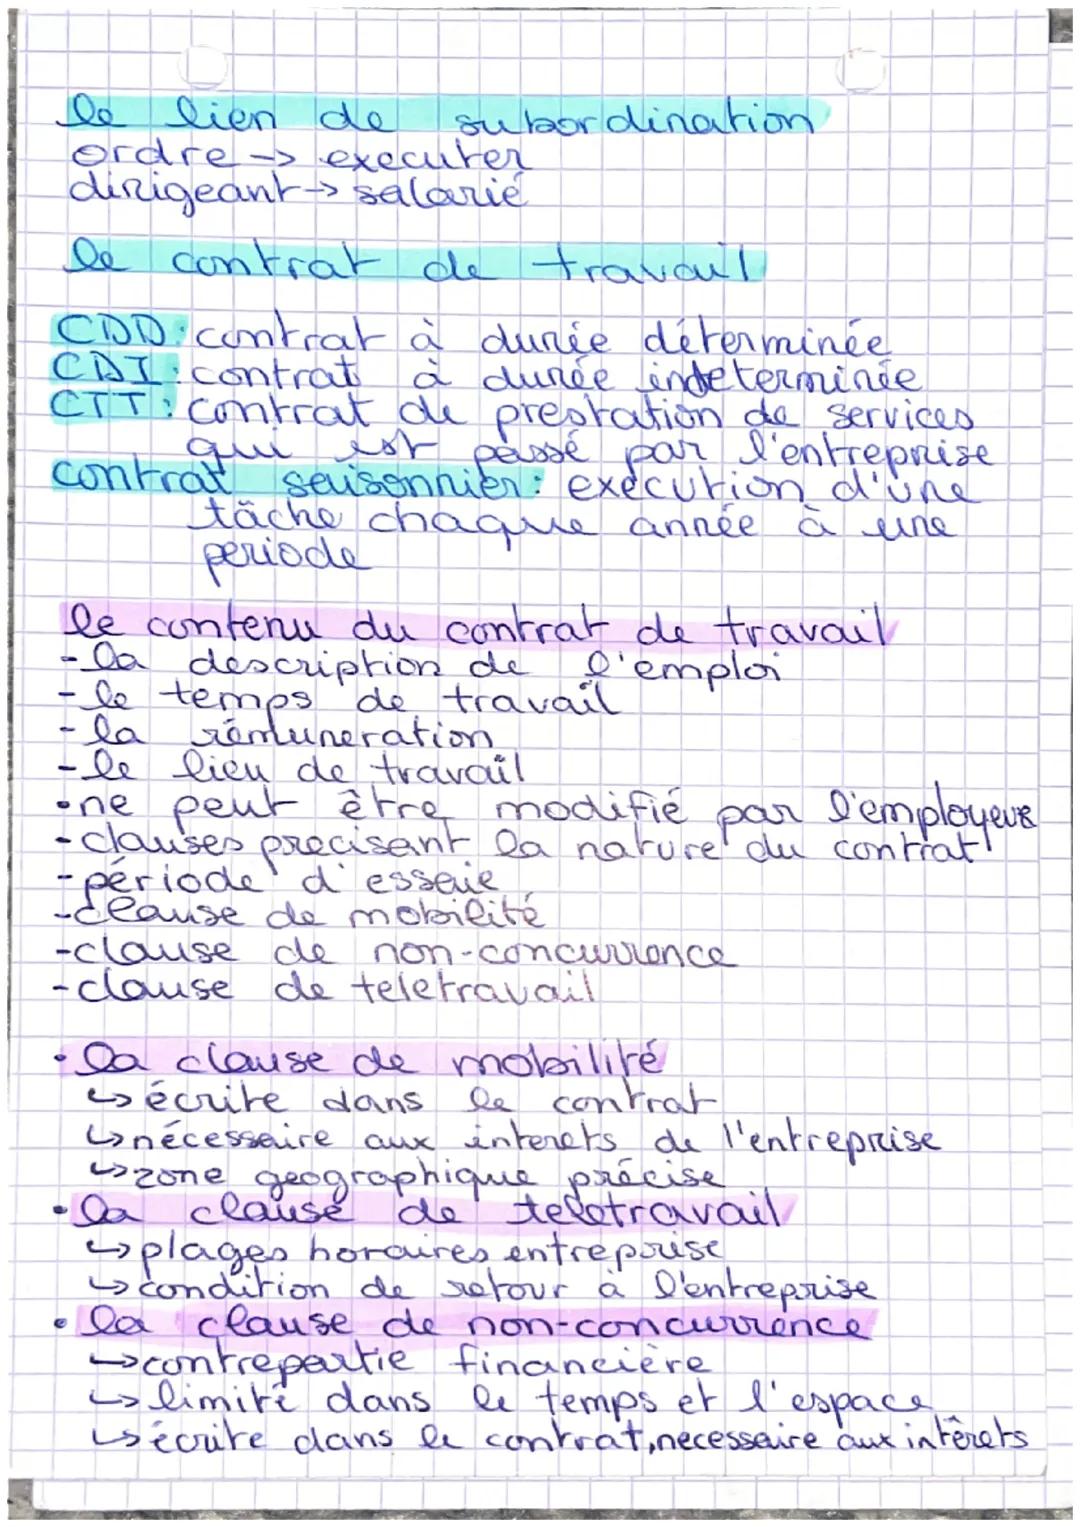 le lien de subordination
ordre -> executer
dirigeant -> salarié
le contrat de travail
CDD : contrat à durée déterminée
CDI : contrat à durée indeterminée
CTT : contrat de prestation de services
qui est passé par l'entreprise
contrat saisonnier : execution d'une
tâche chaque année à une
periode
le contenu du contrat de travail
- la description de l'emploi
- le temps de travail
- la rémuneration
- le lieu de travail
• ne peut être modifié par l'employeur
- clauses precisant la nature du contrat
- période d'essaie
- clause de mobilité
- clause de non-concurrence
- clause de teletravail
• la clause de mobilité
↳ écrite dans le contrat
↳ nécessaire aux interets de l'entreprise
↳ zone geographique précise
• la clause de teletravail
↳ plages horaires entreprise
↳ condition de retour à l'entreprise
• la clause de non-concurrence
↳ contrepartie financière
↳ limité dans le temps et l'espace
↳ écrite dans le contrat, necessaire aux intêrets